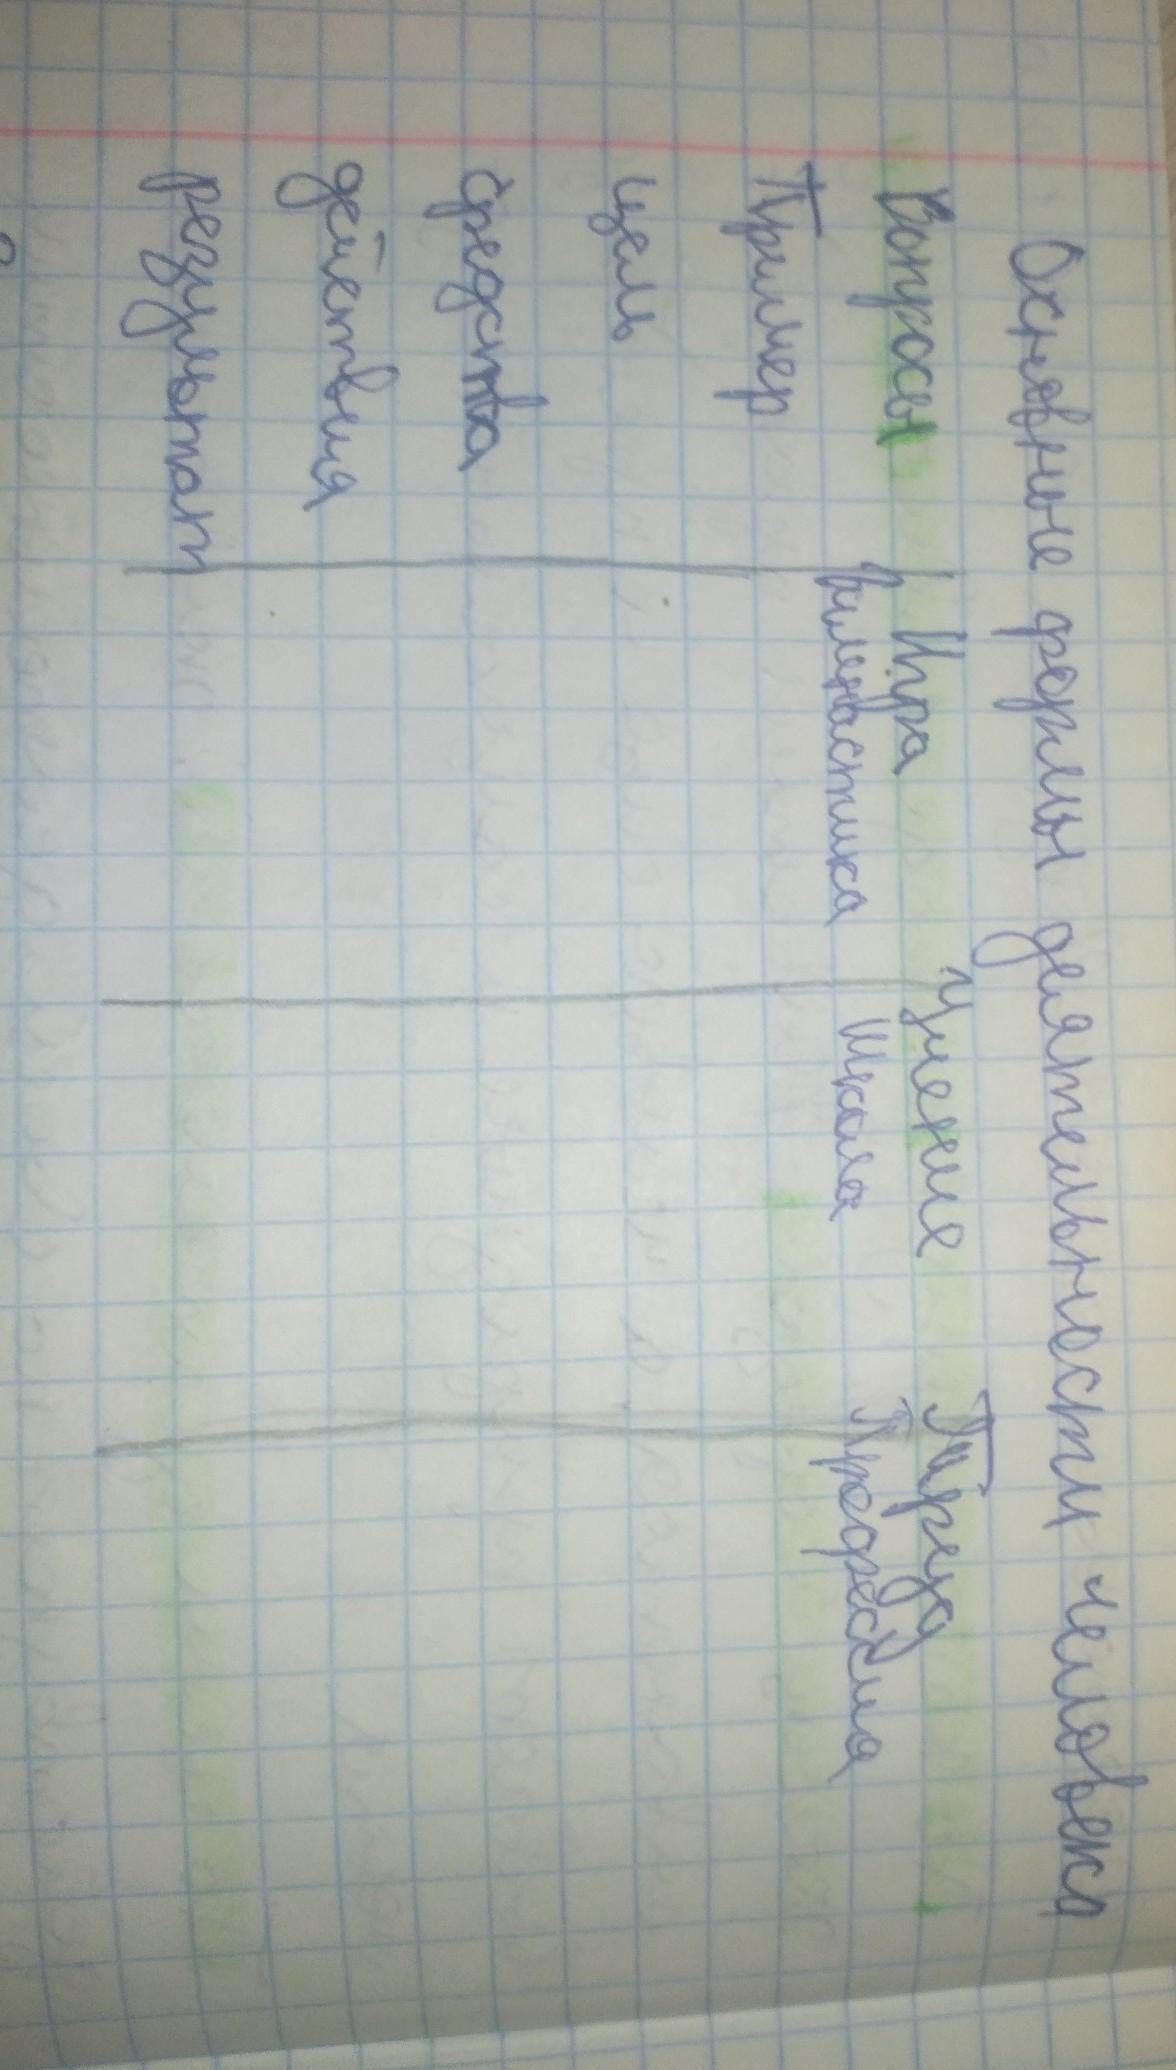 Основные формы деятельности человека
Вопросы Игра Учение Труд
Гимнастика Школа Профессия
Пример
цель
средства
действия
результат